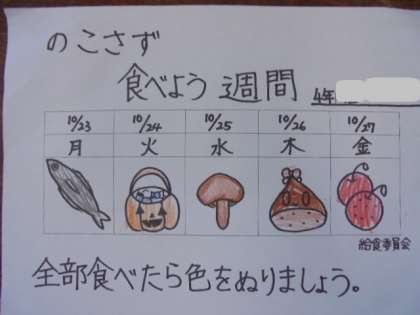 のこさず
食べよう週間
4年
10/23 10/24 10/25 10/26 10/27
月 火 水 木 金
給食委員会
全部食べたら色をぬりましょう。